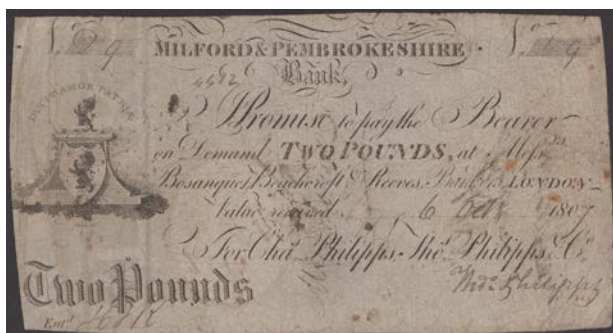 N. N. 9
MILFORD & PEMBROKESHIRE
Bank,
DUCIT AMOR PATRIÆ
I Promise to pay the Bearer
on Demand TWO POUNDS, at Mess.rs
Bosanquet, Beachcroft & Reeves, Bankers LONDON
Value received 6 Oct 1807
For Cha.s Philipps, Tho.s Philipps & Co
Tho.s Philipps
Two Pounds
Ent.d